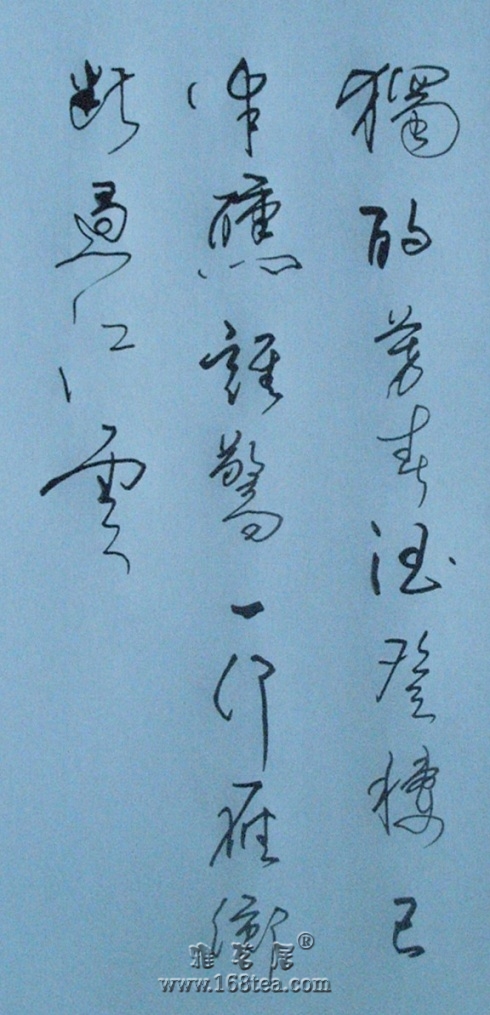 獨酌芳春酒登樓已
半醺誰驚一行雁衝
斷過江雲
雅茗居®
www.168tea.com